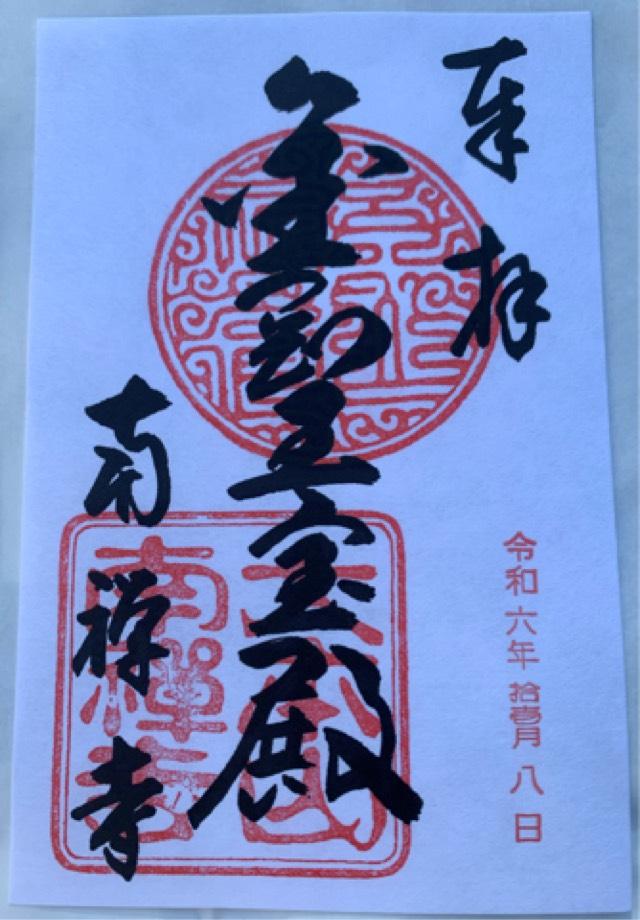 奉拝
令和六年拾壱月八日
金剛王宝殿
南禅寺
南禪寺